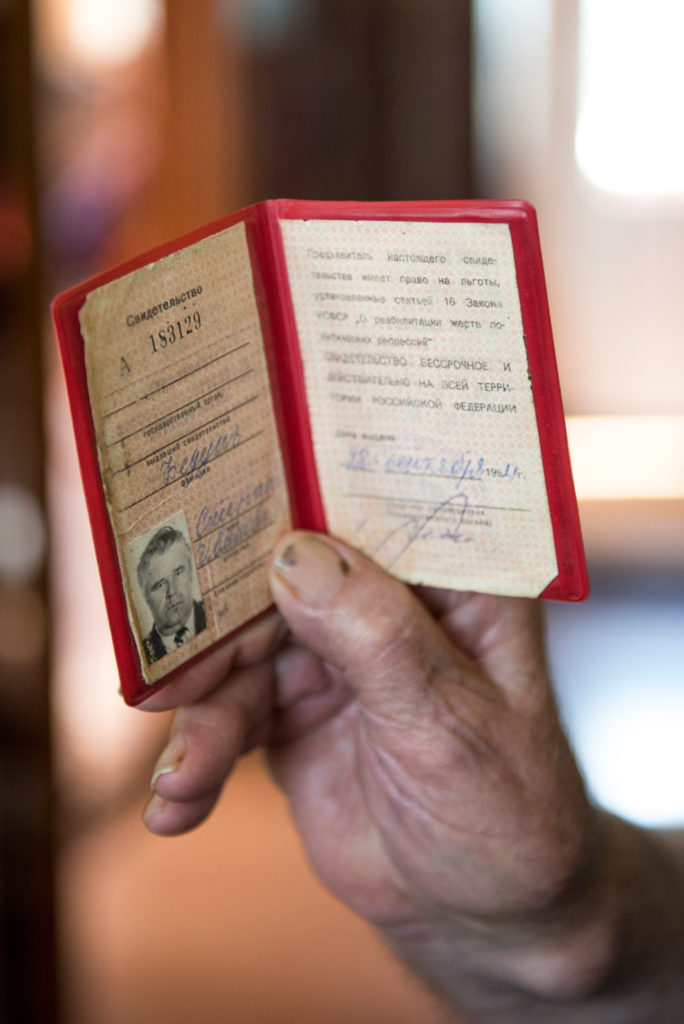 Свидетельство
А 183129
государственный орган,
выдавший свидетельство
фамилия
Предъявитель настоящего свиде-
тельства имеет право на льготы,
установленные статьей 16 Закона
РСФСР „О реабилитации жертв по-
литических репрессий"
СВИДЕТЕЛЬСТВО БЕССРОЧНОЕ И
ДЕЙСТВИТЕЛЬНО НА ВСЕЙ ТЕРРИ-
ТОРИИ РОССИЙСКОЙ ФЕДЕРАЦИИ
Дата выдачи
28 сентября 199 г.